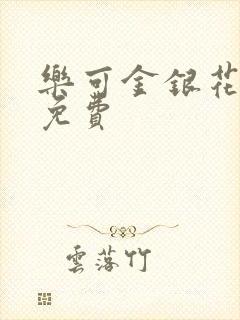 樂可金銀花
免費
雲落竹